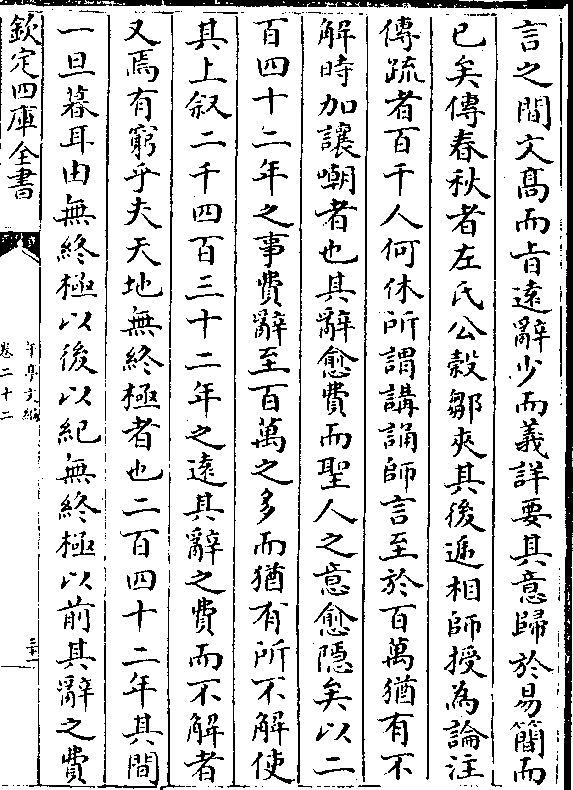 言之間文髙而㫖遠辭少而義詳要其意歸於易簡而
已矣傳春秋者左氏公糓鄒夾其後遞相師授為論注
傳疏者百千人何休所謂講誦師言至於百萬猶有不
解時加讓嘲者也其辭愈費而聖人之意愈隱矣以二
百四十二年之事費辭至百萬之多而猶有所不解使
其上叙二千四百三十二年之遠其辭之費而不解者
又焉有窮乎夫天地無終極者也二百四十二年其間
一旦暮耳由無終極以後以紀無終極以前其辭之費
欽定四庫全書
午亭文編
卷二十二